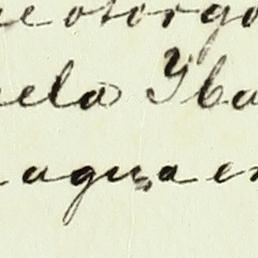 e otorgo
ela Yba
agua en